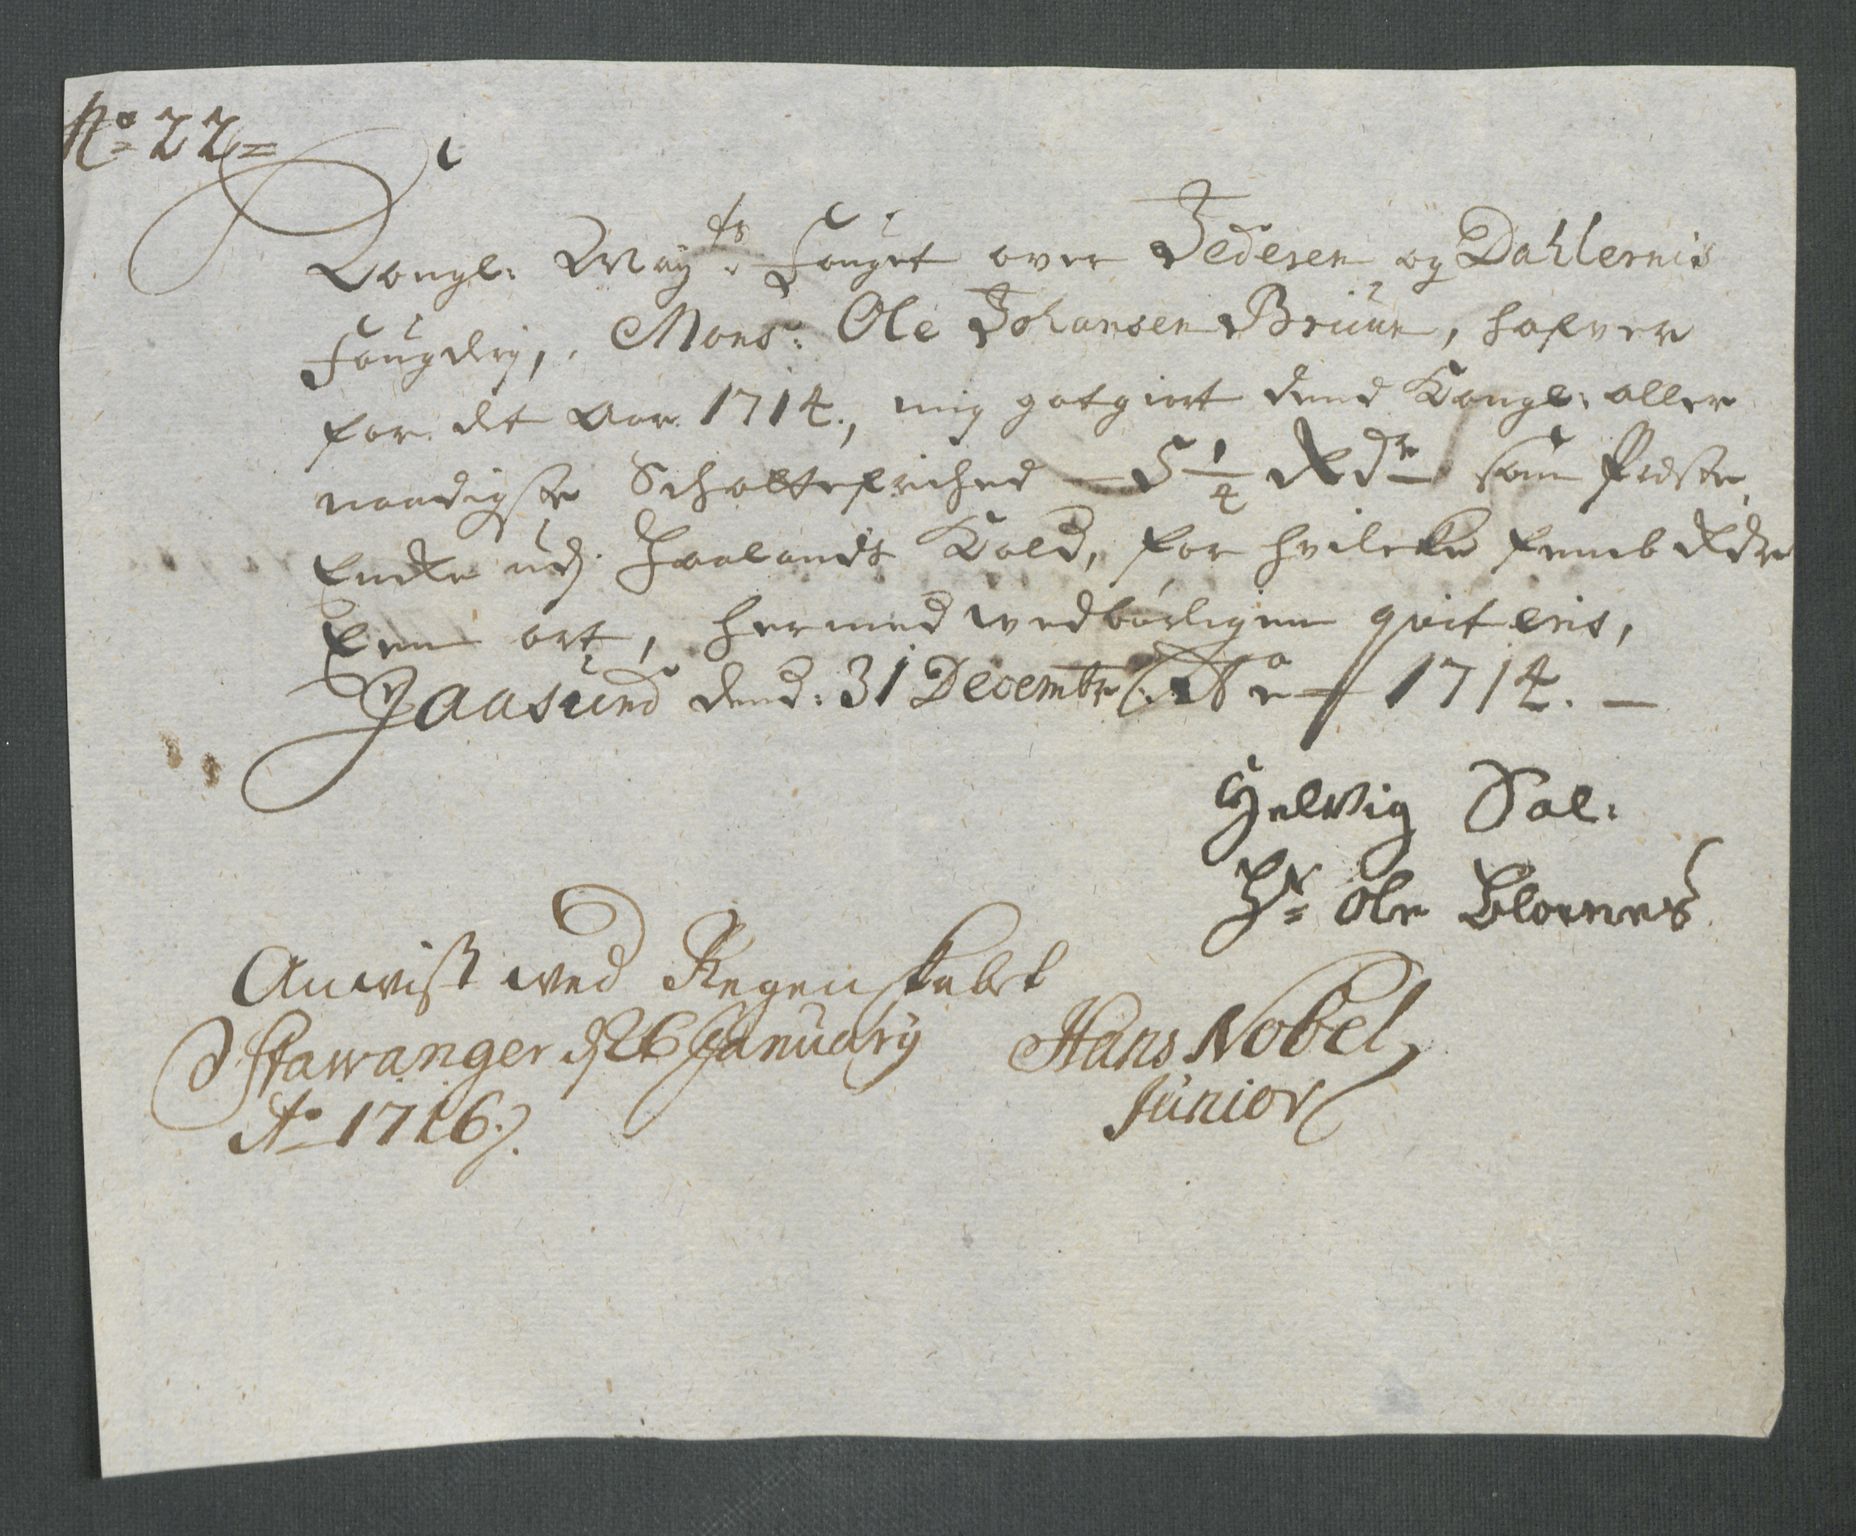 No 22=
Kongl: May.ts Fouget over Jederen og Dahlernis
Fougdrij, Mons: Ole Johansen Bruun, hafver
for det Aar 1714, mig gotgiort dend Kongl: aller
naadigste Schattefrihed – 5 1/4 Rdr – som Præste
Encke udj Haalands Kald, for hvilcke femb Rdr
Een ort, hermed vedbørligen qviteris,
Jaasund dend: 31 Decembr: Ao 1714. –
Helvig Sal:
Hr Ole
Anvist ved Regenskabet
J Stavanger d 26 January
Ao 1716.
Hans Nobel
Junior